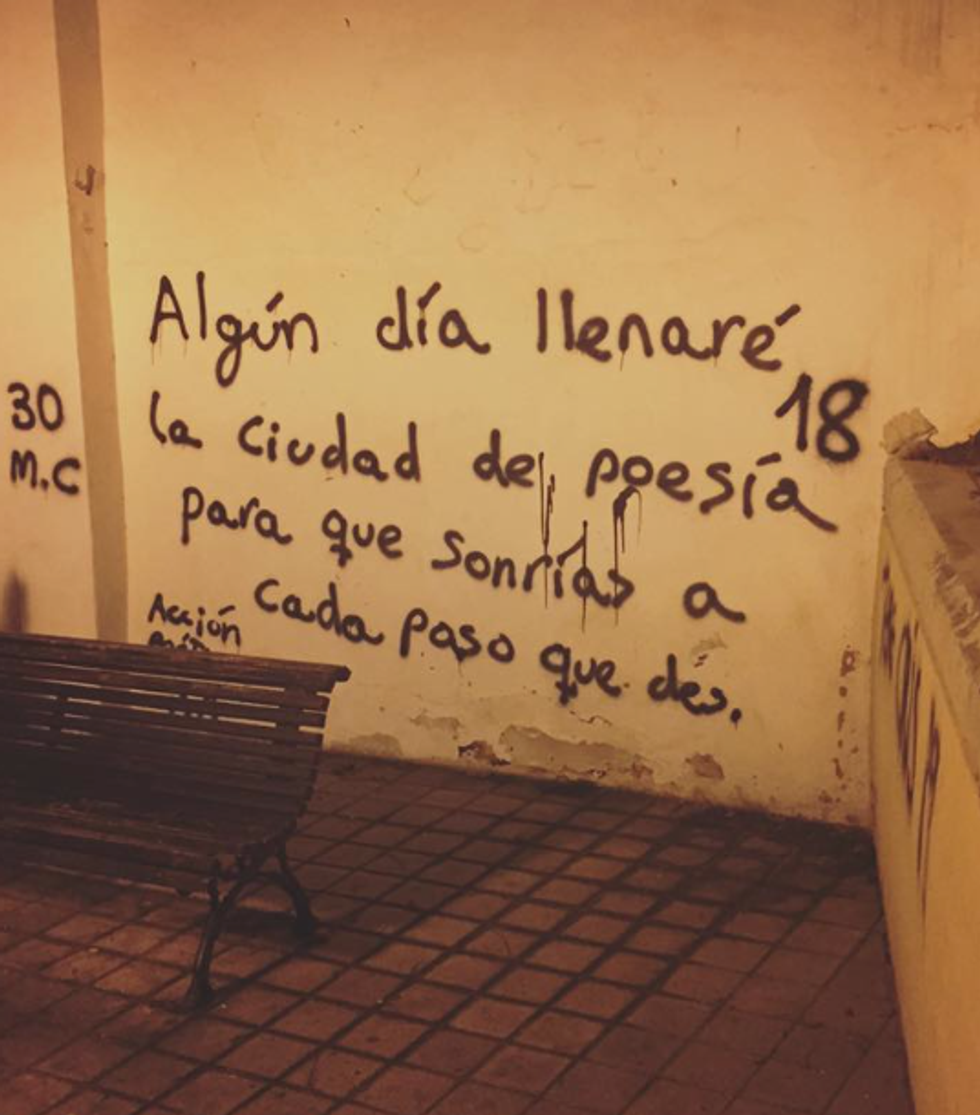 Algún día llenaré
la ciudad de poesía
para que sonrías a
cada paso que des.
18
30
M.C
Acción